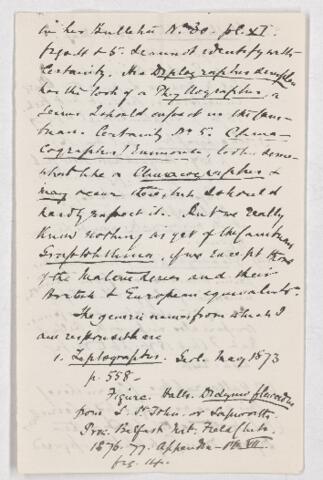 in her Bulletin No. 30. pl. XI.
figs 4 & 5. I cannot identify with
certainty. His Diplograptus
has the look of a Phyllograptus, a
genus I should expect in the
Certainly No 5.
emmonsi, looks some-
what like a Climacograptus &
may occur there, but I should
hardly expect it. But we really
know nothing as yet of the
if we except those
of the Matane series and their
British & European equivalents.
The generic names from which I
am responsible are
1. Leptograptus. Geol. Mag 1873
p. 558 -
Figure. Halls. Didymo flaccidus
from S. St John. or Lapworth
Proc. Belfast Nat. Field Club.
1876. 77. Appendix - Pl. VII.
fig. 14.